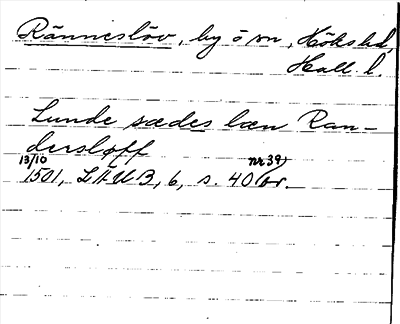 Ränneslöv, by o sn, Höks hd,
Hall. l.
Lunde sædes læn Ran-
dersløff
13/10 nr 39)
1501, LÄUB, 6, s. 40 or.